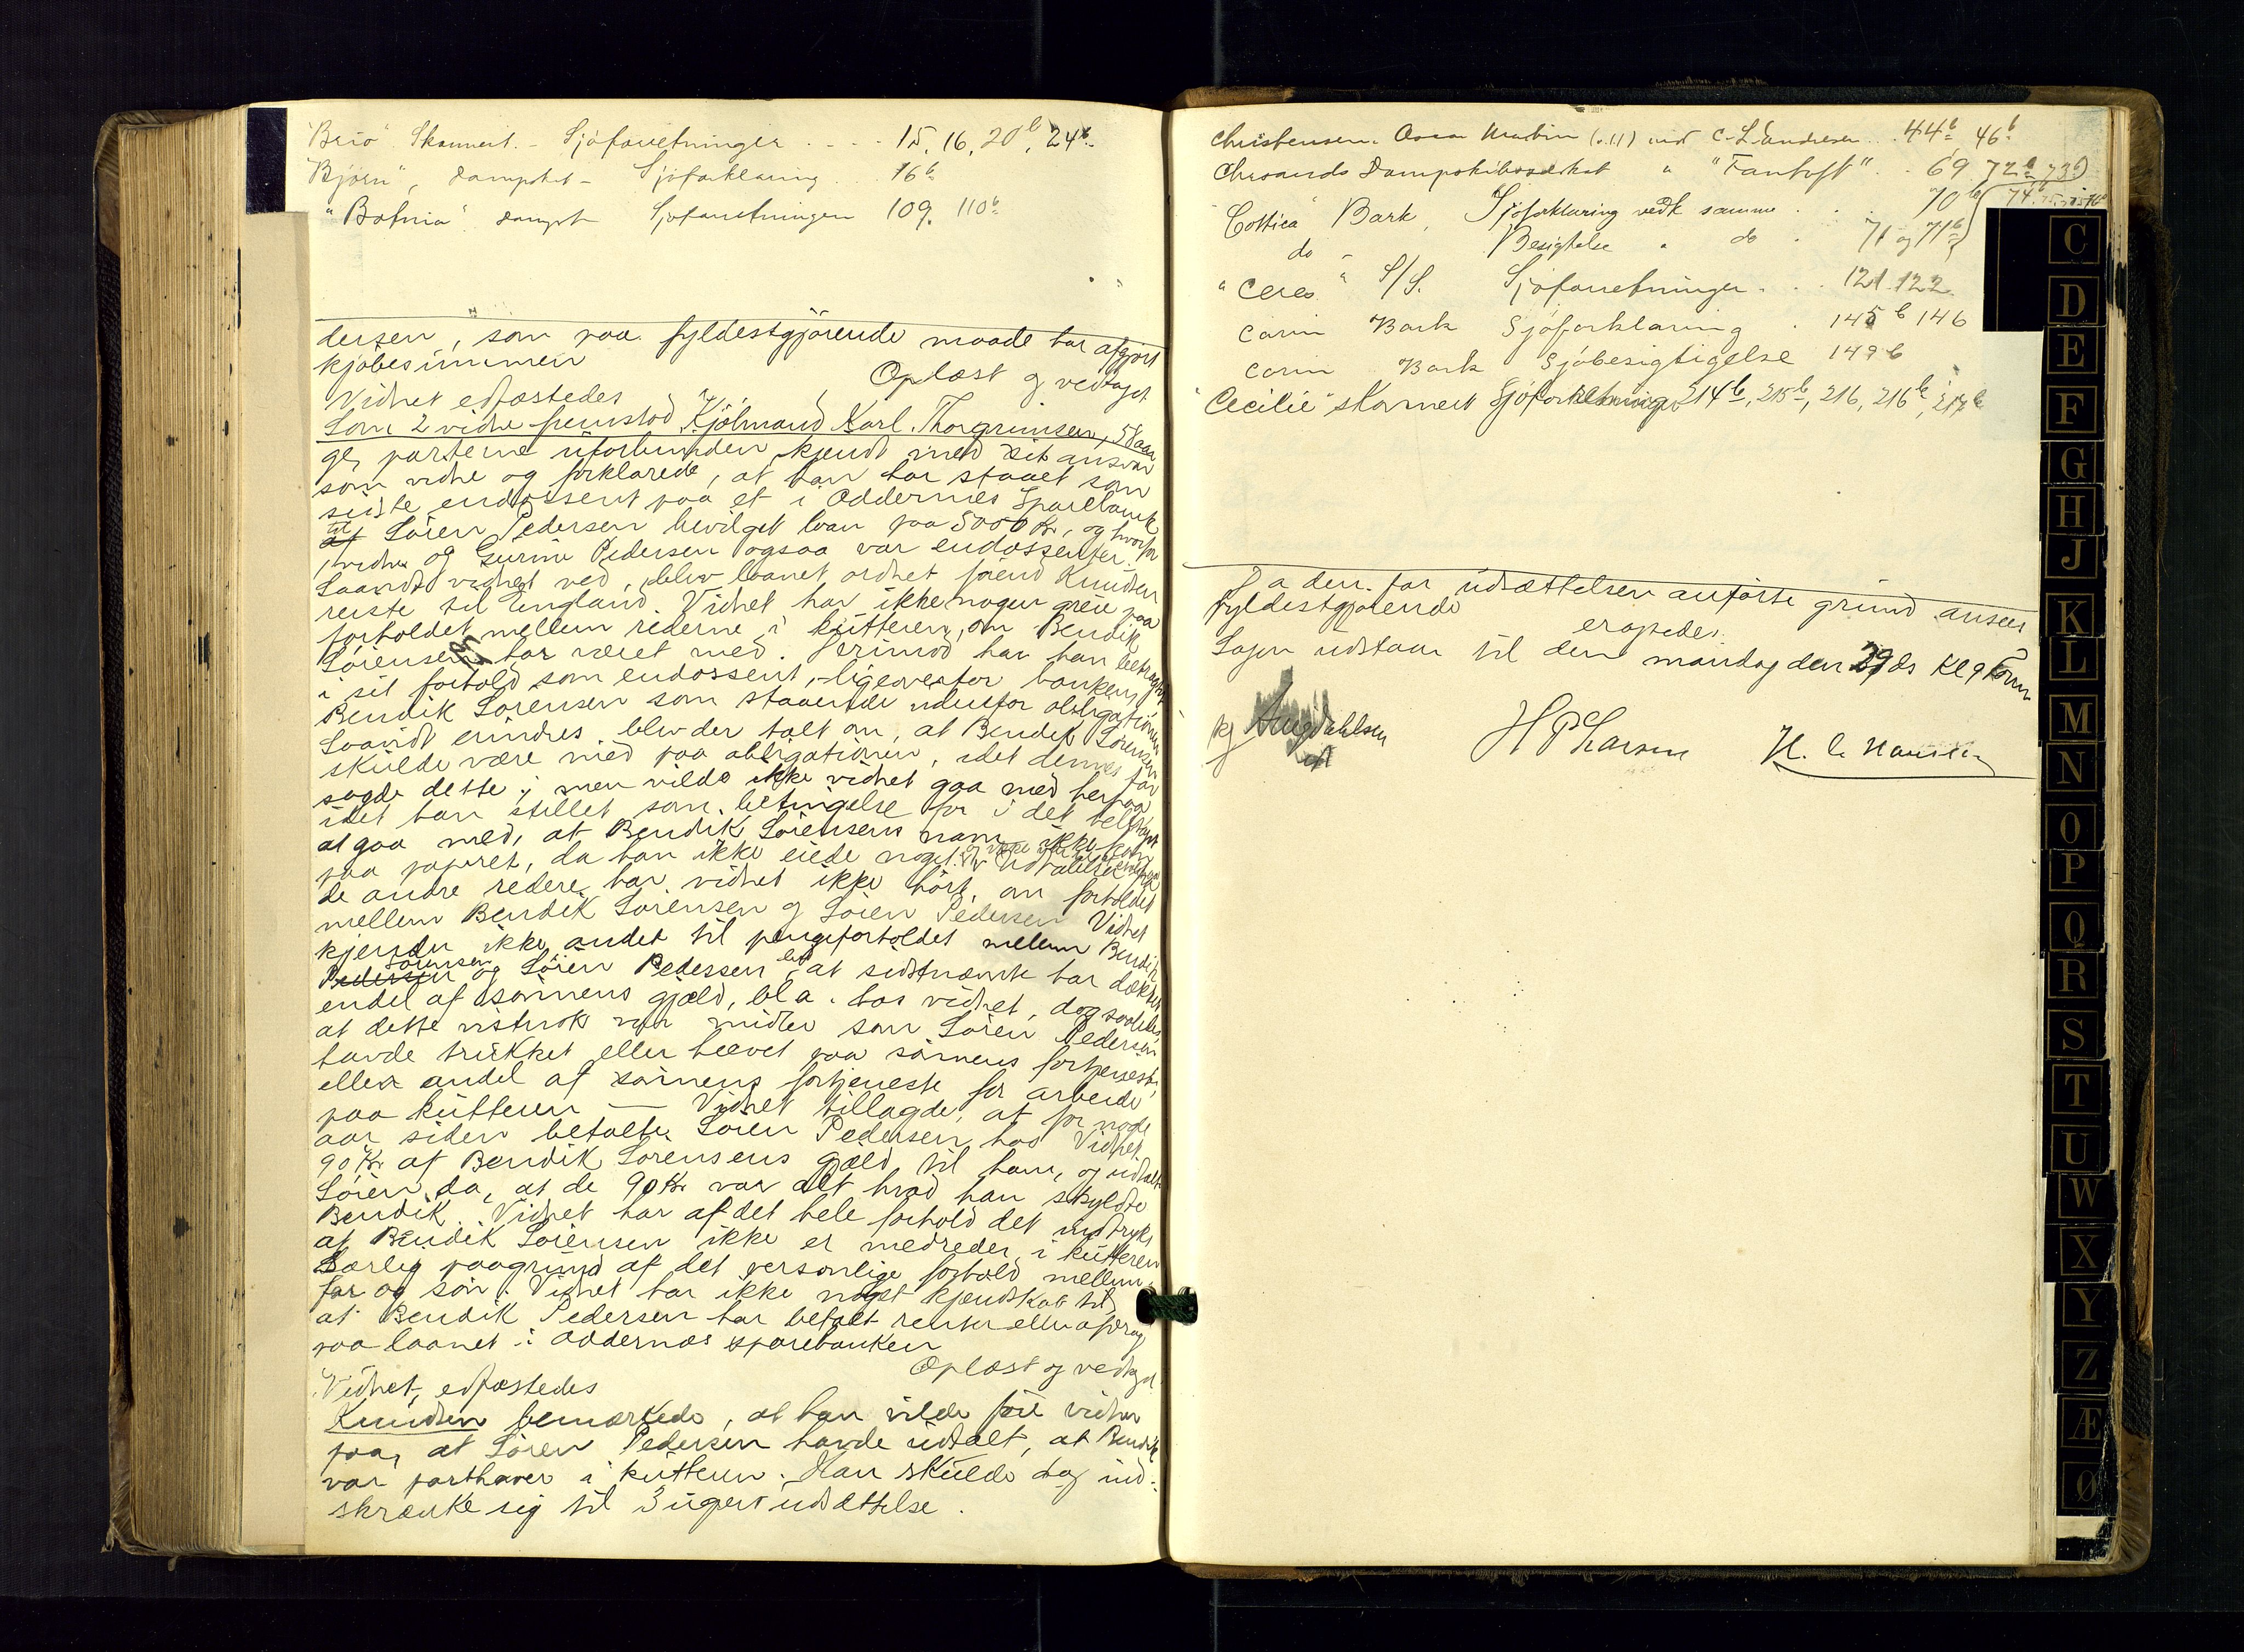 "Brio" Skonnert. - Sjøforretninger . . . . 15, 16, 20b, 24b
"Bjørn", dampskt - Sjøforklaring . . 16b
"Botnia" dampsk Sjøforretningen 109. 110b
dersen, som paa fyldestgjørende maade har afgjort
kjøbesummen
Oplæst og vedtaget
Vidnet edfæstedes
Som 2 vidne fremstod Kjøbmand Karl Thorgrimsen, 58 aar
gl, parterne uforbunden, kjendt med sit ansvar
som vidne og forklarede, at han har staaet som
sidste endossent paa et i Oddernes Sparebank
til Søren Pedersen bevilget laan paa 5000 Kr, og hvorfor
vidne og Gurine Pedersen ogsaa var endossenter.
Saavidt vidnet ved, blev laanet ordnet førend Knudsen
reiste til England. Vidnet har ikke nogen greie paa
forholdet mellem rederne i kutteren, om Bendik
Sørensen har været med. Derimod har han betragtet
i sit forhold som endossent, ligeoverfor banken,
Bendik Sørensen som staaende udenfor obligationen
Saavidt erindres, blev der talt om, at Bendik Sørensen
skulde være med paa obligationen, idet dennes far
sagde dette; men vilde ikke vidnet gaa med herpaa
idet han stillet som betingelse for i det hele taget
at gaa med, at Bendik Sørensens navn ikke kom
paa papiret, da han ikke eiede noget.
de andre redere har vidnet ikke hørt, om forholdet
mellem Bendik Sørensen og Søren Pedersen Vidnet
kjender ikke andet til pengeforholdet mellem Bendik
Sørensen og Søren Pedersen end at sidstnævnte har dækket
endel af sønnens gjæld, bl a. hos vidnet, dog saaledes,
at dette vistnok var midler som Søren Pedersen
havde trukket eller hævet paa sønnens fortjeneste,
eller andel af sønnens fortjeneste for arbeide
paa kutteren — Vidnet tillagde, at for nogle
aar siden betalte Søren Pedersen hos Vidnet
90 Kr af Bendik Sørensens gæld til ham, og udtalte
Søren da, at de 90 Kr var alt hvad han skyldte
Bendik. Vidnet har af det hele forhold det indtryk
at Bendik Sørensen ikke er medreder i kutteren
særlig paagrund af det personlige forhold mellem
far og søn. Vidnet har ikke noget kjendskab til,
at Bendik Pedersen har betalt renter eller afdrag
paa laanet i Oddernes sparebanken
Oplæst og vedtaget
Vidnet, edfæstedes
Knudsen bemærkede, at han vilde føre vidner
paa, at Søren Pedersen havde udtalt, at Bendik
var parthaver i kutteren. Han skulde dog ind-
skrænke sig til 3 ugers udsættelse.
Christensen. Oscar Martin (s.11) mod C. L. Andresen . . 44b, 46b
Chrsands Dampskibsselskab " "Fantoft" . . 69 72b 73b
"Cottica" Bark, Sjøforklaring vedk samme . . . 70b 74b
do - Besigtelse " do . 71 og 71b
"Ceres" S/S. Sjøforretninger . . . 121. 122
Carin Bark Sjøforklaring . 145b 146
Carin Bark Sjøbesigtigelse 149b
"Cecilie" skonnert Sjøforretninger 214b, 215b, 216, 216b, 217b
Da den for udsættelsen anførte grund ansees
fyldestgjørende
eragtedes:
Sagen udstaar til den mandag den 29 ds Kl 9 Form
H P Larsen H. C. Hansen
C
D
E
F
G
H
J
K
L
M
N
O
P
Q
R
S
T
U
W
X
Y
Z
Æ
Ø